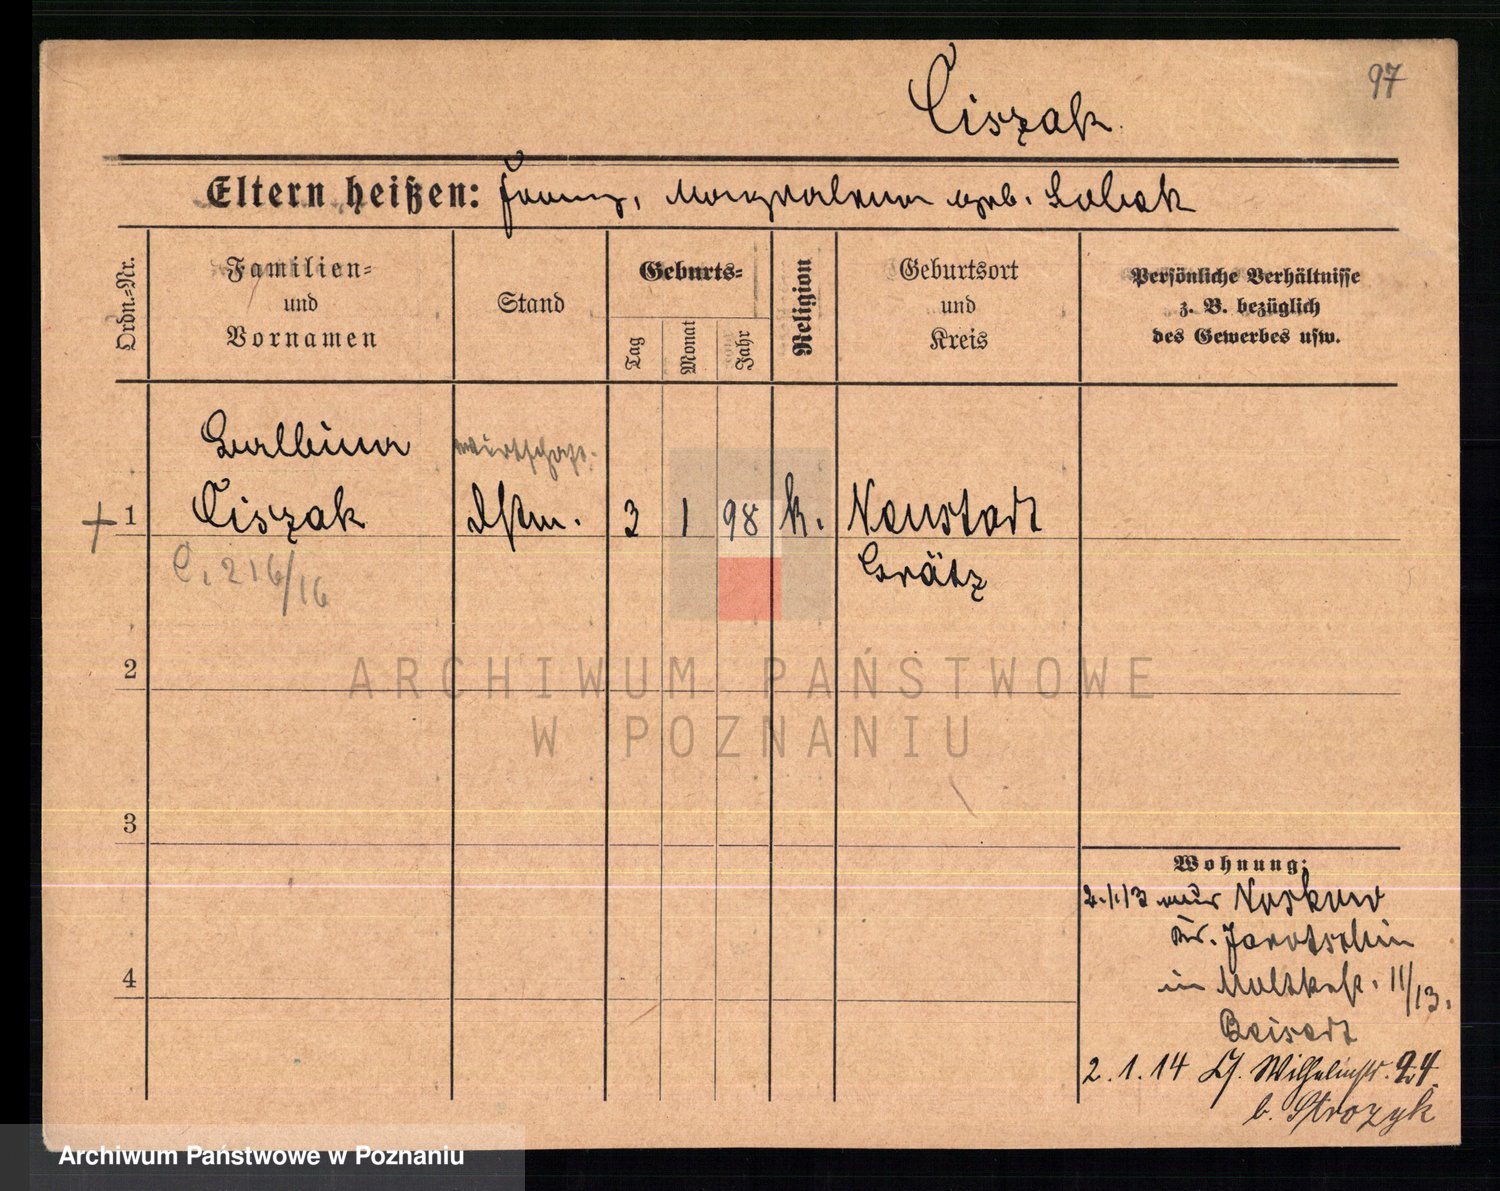 97
Ciszak.
Eltern heißen: Franz, Magdalena geb. Sobek
Ordn.-Nr.
Familien-
und
Vornamen
Stand
Geburts-
Tag
Monat
Jahr
Religion
Geburtsort
und
Kreis
Persönliche Verhältnisse
z. B. bezüglich
des Gewerbes usw.
Balbina
Wirtschafts-
1 Ciszak 3 1 98 k. Neustadt
C. 216/16
Grätz
2
ARCHIWUM PAŃSTWOWE
W POZNANIU
3
Wohnung:
2.1.13 aus Noskow
Kr. Jarotschin
in Moltkestr. 11/13.
2.1.14 Wilhelmstr. 24
b. Strozyk
4
Archiwum Państwowe w Poznaniu